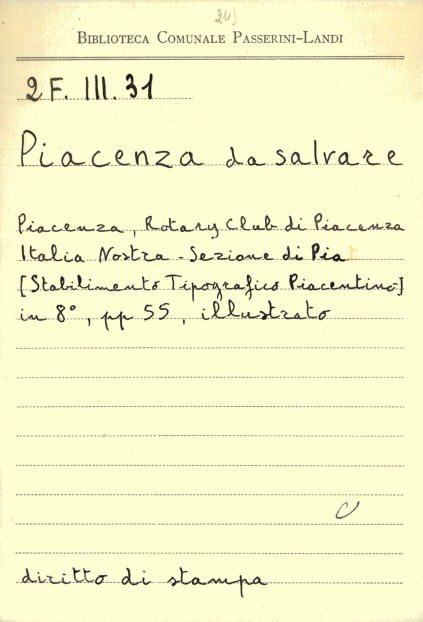 24)
BIBLIOTECA COMUNALE PASSERINI-LANDI
2 F. III. 31
Piacenza da salvare
Piacenza, Rotary Club di Piacenza
Italia Nostra - Sezione di Pia
[Stabilimento Tipografico Piacentino]
in 8°, pp 55, illustrato
C
diritto di stampa